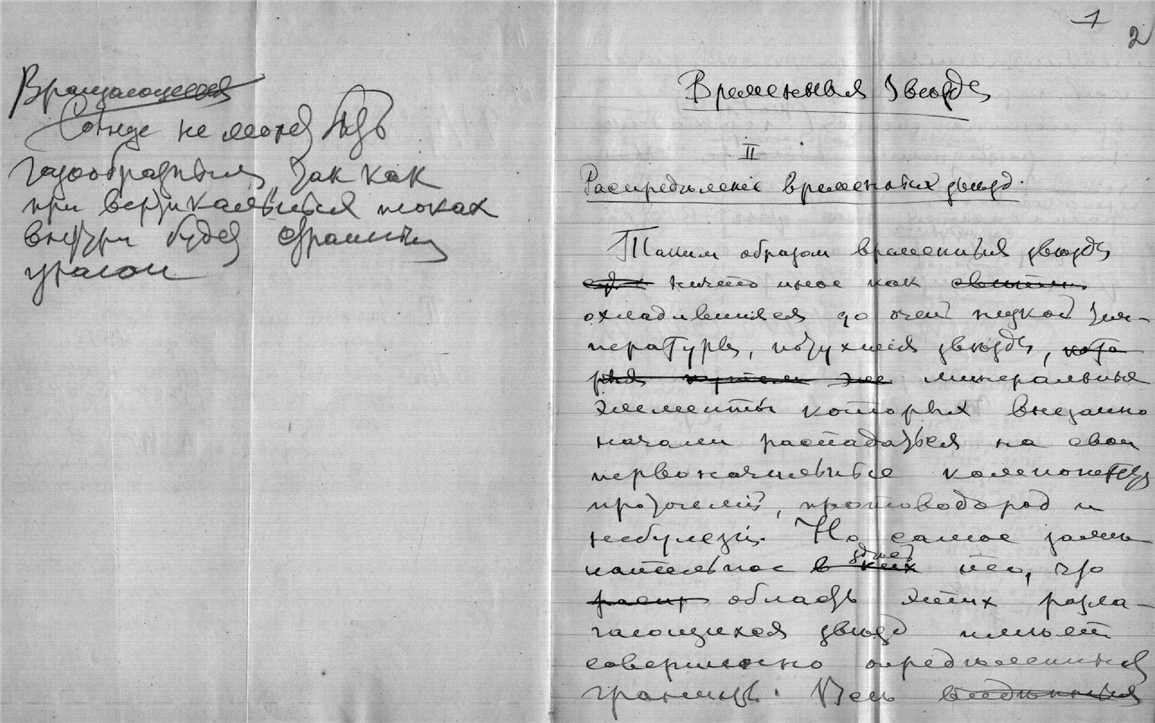 Вращающееся
Солнце не может быть
газообразным, так как
при вертикальных токах
внутри будет страшный
ураган
1
2
Временныя звѣзды
II
Распредѣленіе временныхъ звѣзд.
Таким образом временныя звѣзды
суть ничто иное как
охладившияся до очень низкой тем-
пературы, потухшия звѣзды, кото-
рыя минеральныя
элементы которых внезапно
начали распадаться на свои
первоначальные компоненты
протогелій, протоводород и
небулезій. Но самое замѣ-
чательное здѣсь то, что
область этих разла-
гающихся звѣзд имѣет
совершенно опредѣленныя
границы. Всѣ